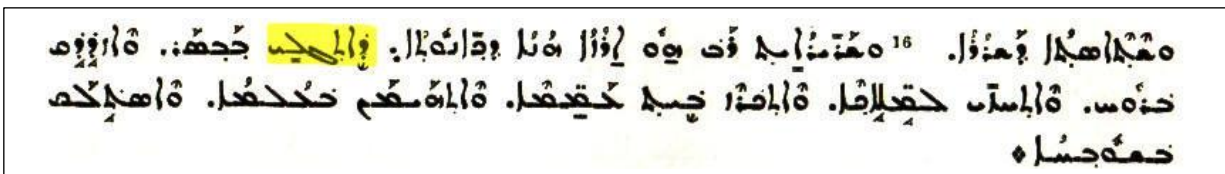 ܘܫܬܐܣܬܐ ܕܫܪܪܐ. 16 ܘܫܪܝܪܐܝܬ ܪܒ ܗܘ ܐܪܙܐ ܗܢܐ ܕܟܐܢܘܬܐ. ܕܐܬܓܠܝ ܒܒܣܪ. ܘܐܙܕܕܩ
ܒܪܘܚ. ܘܐܬܚܙܝ ܠܡܠܐܟܐ. ܘܐܬܟܪܙ ܒܝܬ ܥܡܡܐ. ܘܐܬܗܝܡܢ ܒܥܠܡܐ. ܘܐܣܬܠܩ
ܒܫܘܒܚܐ ܀